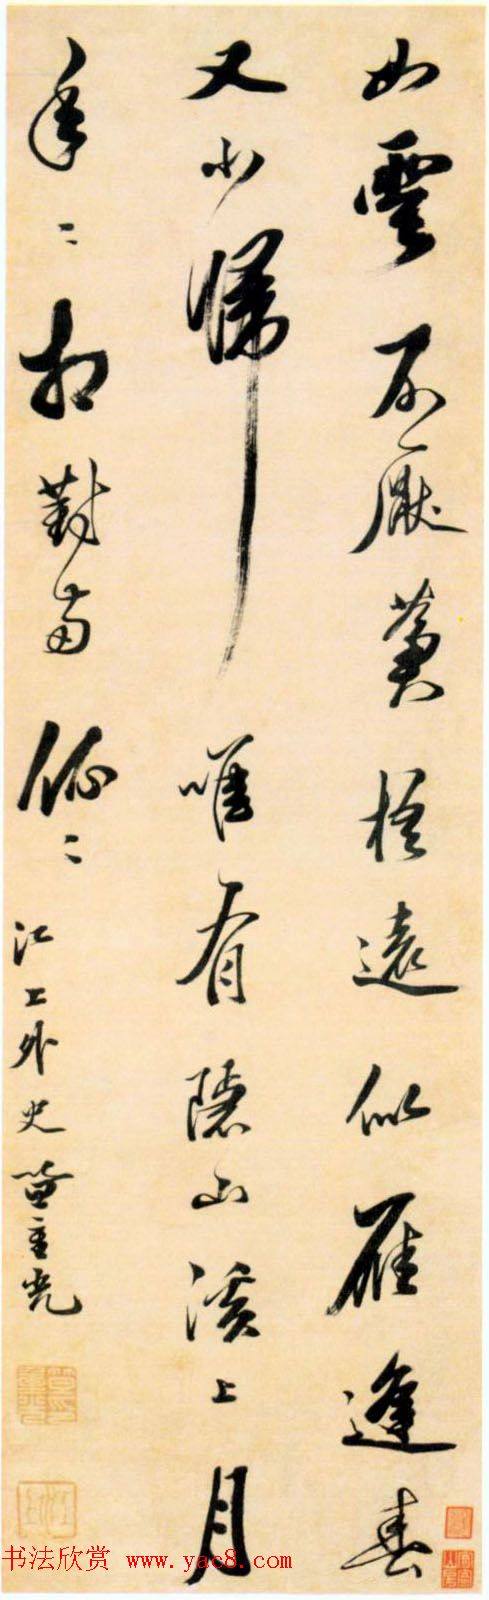 如雲不厭蒼梧遠似雁逢春
又北歸唯有隱山溪上月
年々相對兩依々江上外史笪重光
书法欣赏 www.yac8.com